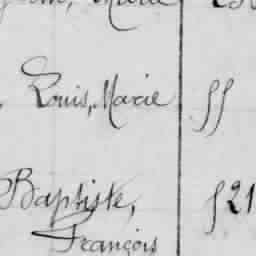 Marie
, Louis, Marie
Baptiste, 21
François